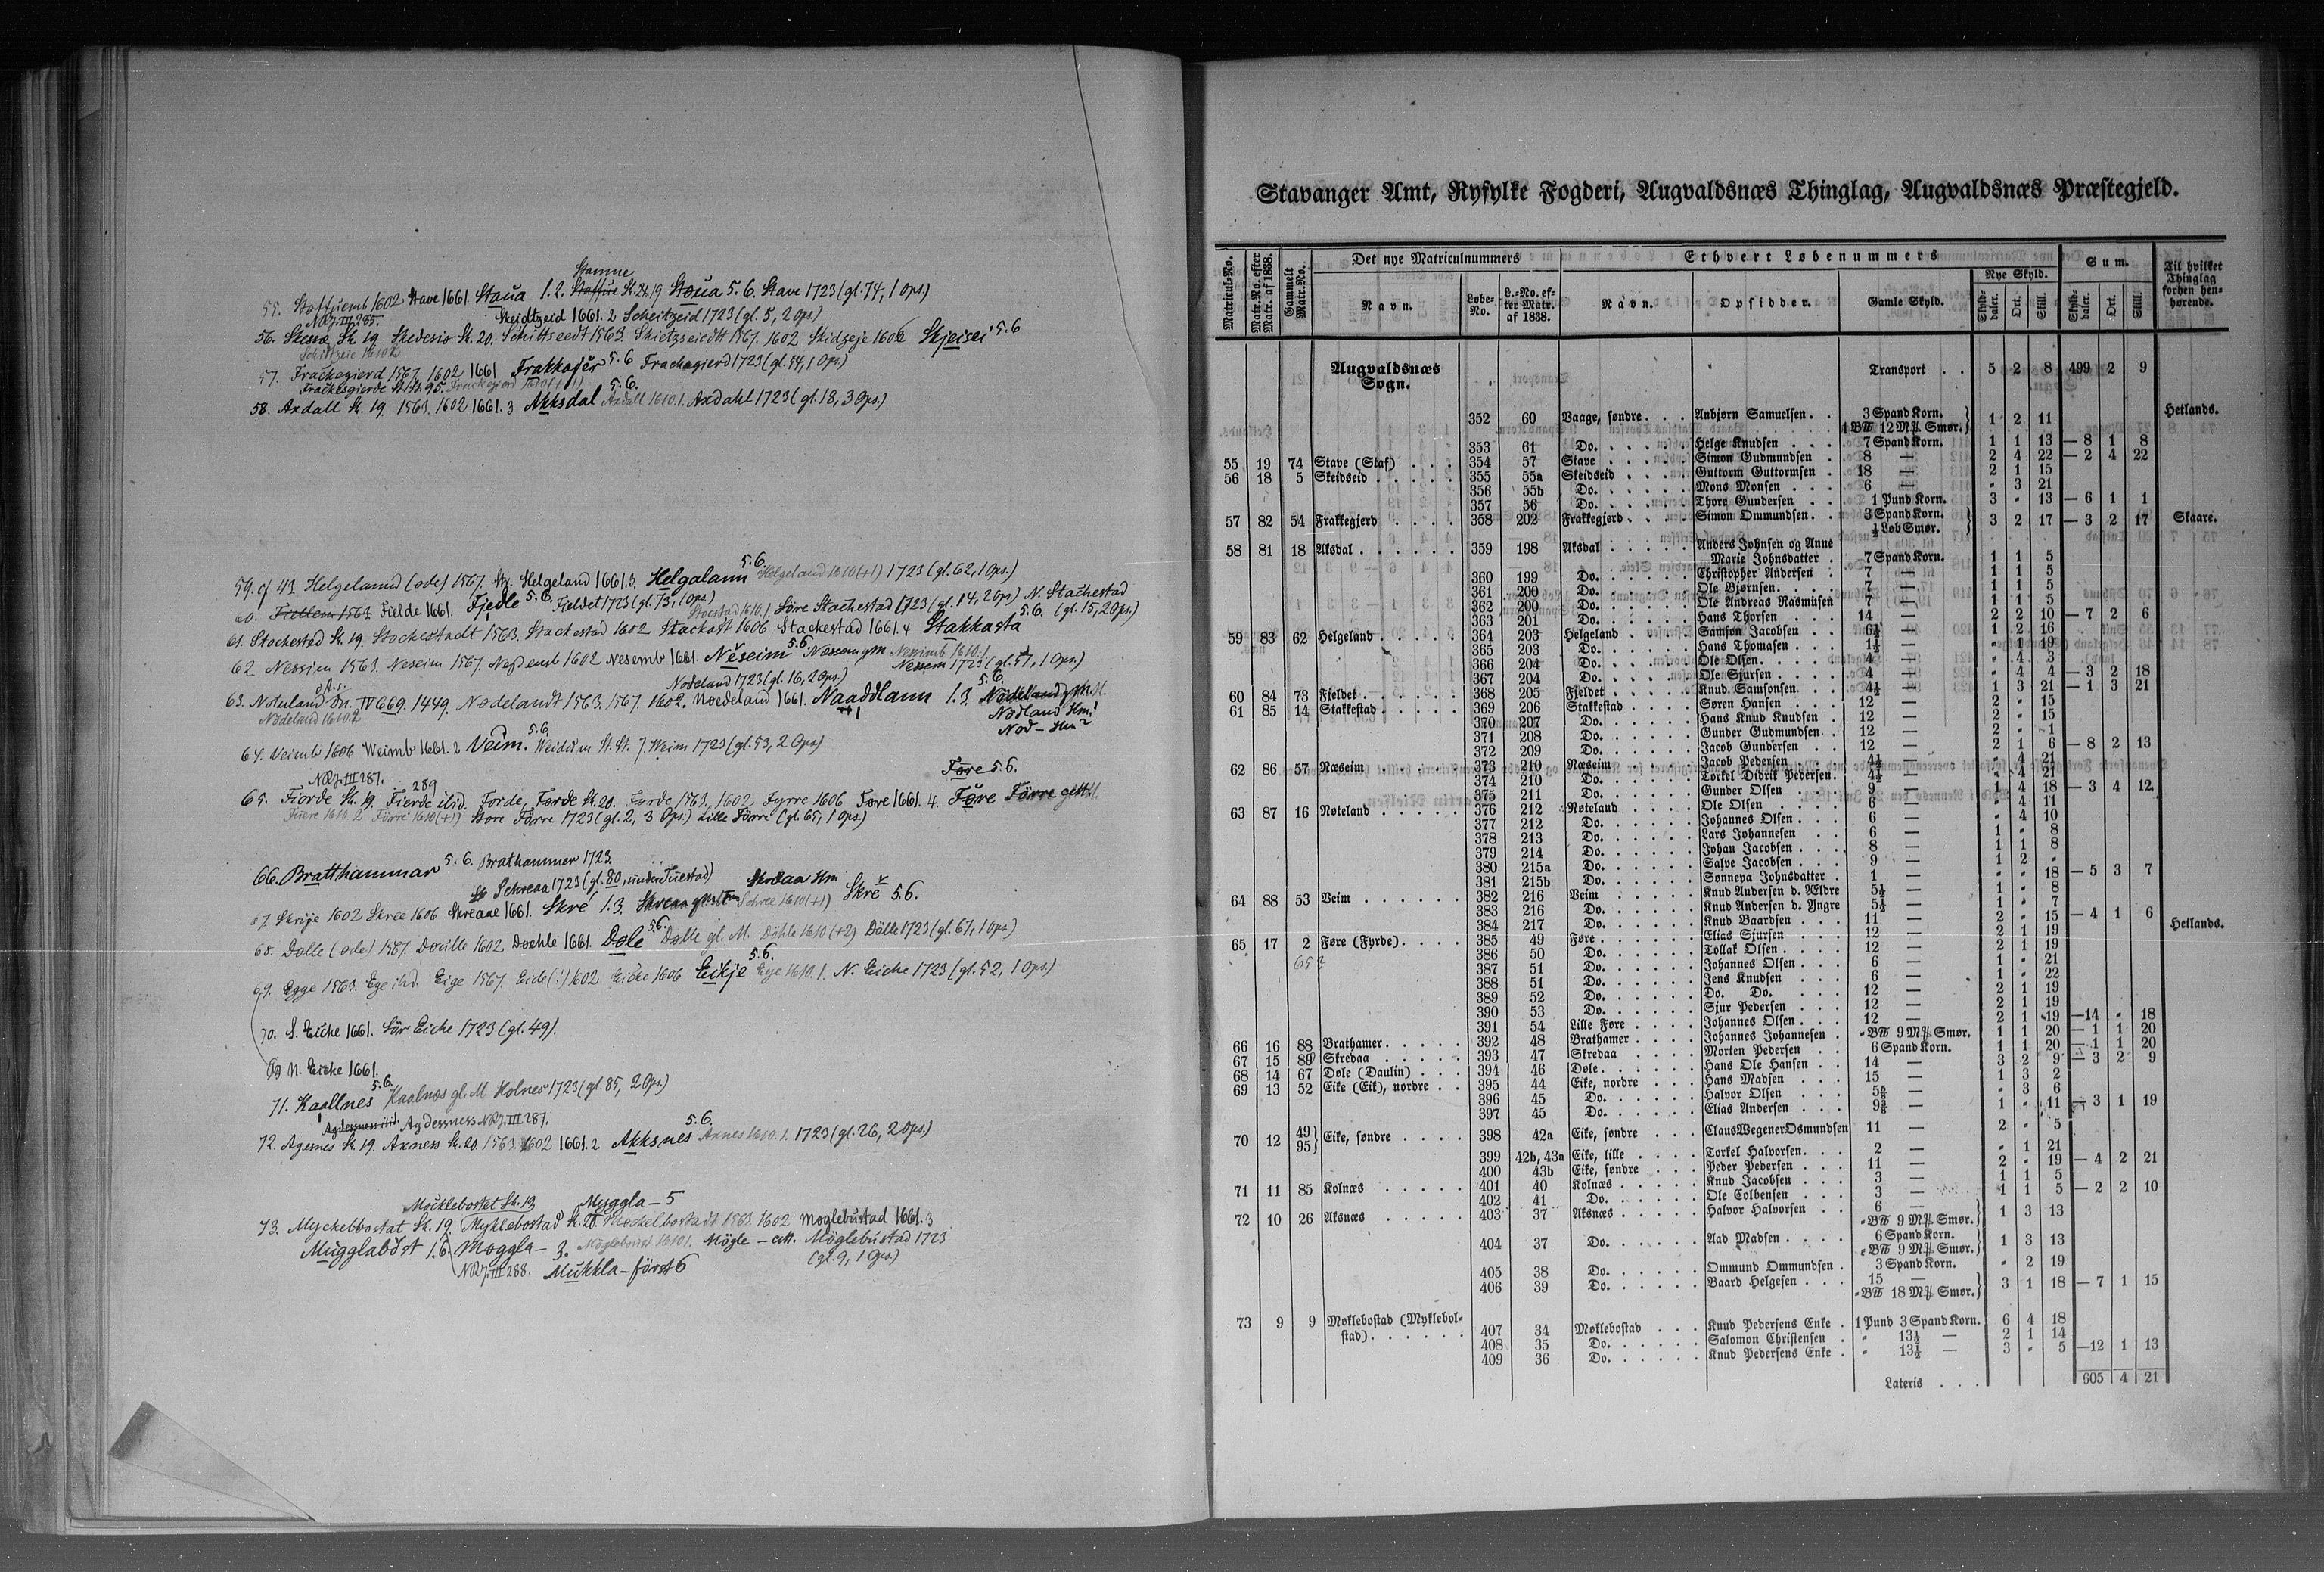 Stamne
55. Stoffuemb 1602 Stave 1661. Staua 1.2. Staffue St. 19 Stoua 5. 6. Stave 1723 (gl. 74, 1 Ops.)
NRJ. III 285. Skeidtzeid 1661. 2 Scheitzeid 1723 (gl. 5, 2 Ops)
56. Skesse St. 19. Skedesio St. 20. Schutseedt 1563. Skietzseiedtt 1567. 1602 Skidzeje 1606 Skjeisei 5. 6
Schittzeie 1610. 2
57. Frackegierd 1567. 1602 1661 Frakkajer 5. 6 Frachagierd 1723 (gl. 54, 1 Ops.)
Frackesgierde St. St. 95. Frackegierd 1610 (+1)
58. Axdall St. 19. 1563. 1602. 1661. 3 Akksdal 5. 6. Axdall 1610. 1. Axdahl 1723 (gl. 18, 3 Ops.)
59. cf 43 Helgelannd (øde) 1567. Helgeland 1661. 3. Helgalann 5. 6. Helgeland 1610 (+1) 1723 (gl. 62, 1 Ops.)
60. Fiellem 1563 Fielde 1661. Fjedle 5. 6. Fieldet 1723 (gl. 73, 1 Ops.)
Stocstad 1610. 1. Søre Stachestad 1723 (gl. 14, 2 Ops) N. Stachestad
61. Stockestad St. 19. Stockestadt 1563. Stackestad 1602 Stackast 1606 Stackestad 1661. 4 Stakkasta 5. 6. (gl. 15, 2 Ops.)
62. Nessiem 1563. Neseim 1567. Nessemb 1602 Nesemb 1661. Neseim 5. 6. Næssem gM Nessimb 1610. 1.
Nessem 1723 (gl. 57, 1 Ops.)
Nodeland 1723 (gl. 16, 2 Ops.)
63. Noteland Dn. IV 669. 1449. Nødelandt 1563. 1567. 1602. Noedeland 1661. Naaddlann 1. 3. 5. 6. Nødeland gM.
Nødeland 1610. 2 Nødland Hm.1
Nod- Hm 2
64. Veimb 1606 Weimb 1661. 2 Veim. 5. 6. Weidem St. St. 7. Weim 1723 (gl. 53, 2 Ops)
NRJ. III 287. 289 Føre 5. 6.
65. Fiorde St. 19. Fierde ibid. Forde, Førde St. 20. Fyrde 1563. 1602 Fyrre 1606 Føre 1661. 4. Føre Førre gM.
Fuere 1610. 2 Førre 1610 (+1) Store Førre 1723 (gl. 2, 3 Ops.) Lille Førre (gl. 65, 1 Ops.)
66. Bratthammar 5. 6. Brathammer 1723.
Schreaa 1723 (gl. 80, under Tuestad) Skredaa Hm
67. Skrije 1602 Skree 1606 Skreaae 1661. Skré 1. 3. Schree 1610 (+1) Skre 5. 6.
68. Dalle (øde) 1567. Døuille 1602 Doehle 1661. Døle 5. 6. Dølle gl. M. Døhle 1610 (+2) Dølle 1723 (gl. 67, 1 Ops)
69. Egge 1563. Ege ibd. Eige 1567. Eide (!) 1602 Eiche 1606 Eikje 5. 6. Eye 1610. 1. N. Eiche 1723 (gl. 52, 1 Ops.)
70. S. Eiche 1661. Sør Eiche 1723 (gl. 49).
69 N. Eiche 1661.
71. Kaallnes 5. 6. Kaalnæs gl. M. Holnes 1723 (gl. 85, 2 Ops.)
Agdessness ibid. Agdessness NRJ. III 287.
72. Agernes St. 19. Axness St. 20. 1563. 1602 1661. 2 Akksnes 5. 6. Axnes 1610. 1. 1723 (gl. 26, 2 Ops.)
Mocklebostet St. 19 Myggla- 5
73. Myckebbostat St. 19. Myklebostad St. 20. Møckelbostadt 1563. 1602 Moglebustad 1661. 3
Mugglabøst 1. 6. Møggla- 3. Møgle- alt. Møglebustad 1723
NRJ. III 288. Mukkla- først 6 (gl. 9, 1 Ops.)
Stavanger Amt, Ryfylke Fogderi, Augvaldsnæs Thinglag, Augvaldsnæs Præstegjeld.
Matricul-No. Matr.-No. efter Matr. af 1838. Gammelt Matr.-No. Det nye Matriculnummers Ethvert Løbenummers Sum. Til hvilket Thinglag forhen henhørende.
Navn. Løbe-No. L.-No. efter Matr. af 1838. Navn. Opsidder. Gamle Skyld. Nye Skyld. Skylddaler. Ort. Skill. Skylddaler. Ort. Skill.
Augvaldsnæs Sogn. Transport . . 5 2 8 499 2 9
352 60 Vaage, søndre . . . Anbjørn Samuelsen . . 3 Spand Korn. 1 BH 12 Mk Smør. } 1 2 11 Hetlands.
353 61 Do. Helge Knudsen 7 Spand Korn. 1 1 13 — 8 1 8
55 19 74 Stave (Staf) . . . 354 57 Stave Simon Gudmundsen . 8 — 2 4 22 — 2 4 22
56 18 5 Skeidseid 355 55a Skeidseid Guttorm Guttormsen . 18 — 2 1 15
356 55b Do. Mons Monsen . . . 6 — " 3 21
357 56 Do. Thore Gundersen . . 1 Pund Korn. 3 " 13 — 6 1 1
57 82 54 Frakkegjerd 358 202 Frakkegjord Simon Ommundsen . . 3 Spand Korn. ½ Løb Smør. } 3 2 17 — 3 2 17 Skaare.
58 81 18 Aksdal 359 198 Aksdal Anders Johnsen og Anne
Marie Johnsdatter . 7 Spand Korn. 1 1 5
360 199 Do. Christopher Andersen . 7 — 1 1 5
361 200 Do. Ole Bjørnsen 7 — 1 1 5
362 200 Do. Ole Andreas Rasmusen 7 — 1 1 5
363 201 Do. Hans Thorsen 14 — 2 2 10 — 7 2 6
59 83 62 Helgeland 364 203 Helgeland Samson Jacobsen . . 6½ — 1 2 16
365 203 Do. Hans Thomasen . . . 1½ — " 1 19
366 204 Do. Ole Olsen 4 — " 4 3
367 204 Do. Ole Sjursen 4 — " 4 4 — 3 2 18
60 84 73 Fjeldet 368 205 Fjeldet Knud Samsonsen . . 4½ — 1 3 21 — 1 3 21
61 85 14 Stakkestad 369 206 Stakkestad Søren Hansen 12 — 2 " 15
370 207 Do. Hans Knud Knudsen . 12 — 2 " 15
371 208 Do. Gunder Gudmundsen . 12 — 2 " 1
372 209 Do. Jacob Gundersen . . 12 — 2 1 6 — 8 2 13
62 86 57 Næseim 373 210 Næseim Jacob Pedersen 4½ — " 4 21
374 210 Do. Torkel Didrik Pedersen. 4½ — " 4 21
375 211 Do. Gunder Olsen 9 — 1 4 18 — 3 4 12
63 87 16 Noteland 376 212 Noteland Ole Olsen 6 — " 4 11
377 212 Do. Johannes Olsen 6 — " 4 10
378 213 Do. Lars Johannesen 6 — 1 " 8
379 214 Do. Johan Jacobsen 8 — 1 1 8
380 215a Do. Salve Jacobsen 9 — 1 2 "
381 215b Do. Sønneva Johnsdatter . 1 — " " 18 — 5 3 7
64 88 53 Veim 382 216 Veim Knud Andersen d. Ældre 5½ — 1 " 8
383 216 Do. Knud Andersen d. Yngre 5½ — 1 " 7
384 217 Do. Knud Baardsen 11 — 2 " 15 — 4 1 6
65 17 2 Føre (Fyrde) 385 49 Føre Elias Sjursen 12 — 2 1 19 Hetlands.
65 386 50 Do. Tollak Olsen 12 — 2 1 19
387 51 Do. Johannes Olsen 6 — 1 " 21
388 51 Do. Jens Knudsen 6 — 1 " 22
389 52 Do. Do. Do. 12 — 2 1 19
390 53 Do. Sjur Pedersen 12 — 2 1 19
391 54 Lille Føre Johannes Olsen 12 — 2 1 19 —14 " 18
66 16 88 Brathamer 392 48 Brathamer Johannes Johannesen . " BH 9 Mk Smør. 1 1 20 — 1 1 20
67 15 89 Skredaa 393 47 Skredaa Morten Pedersen 6 Spand Korn. 1 1 20 — 1 1 20
68 14 67 Døle (Daulin) 394 46 Døle Hans Ole Hansen 14 — 3 2 9 — 3 2 9
69 13 52 Eike (Eik), nordre . . 395 44 Eike, nordre Hans Madsen 15 — 1 3 2
396 45 Do. Halvor Olsen 5⅝ — " 3 6
397 45 Do. Elias Andersen 9⅜ — 1 " 11 — 3 1 19
70 12 49 95 } Eike, søndre 398 42a Eike, søndre Claus Wegener Osmundsen 11 — 2 " 5
399 42b, 43a Eike, lille Torkel Halvorsen 2 — " 1 21
400 43b Eike, søndre Peder Pedersen 11 — 2 " 19 — 4 2 21
71 11 85 Kolnæs 401 40 Kolnæs Knud Jacobsen 3 — 1 1 5
402 41 Do. Ole Colbensen 3 — 1 1 5 — 2 2 10
72 10 26 Aksnæs 403 37 Aksnæs Halvor Halvorsen 6 — " BH 9 Mk Smør. } 1 3 13
404 37 Do. Aad Madsen 6 Spand Korn. " BH 9 Mk Smør. } 1 3 13
405 38 Do. Ommund Ommundsen . 3 Spand Korn. " 2 19
406 39 Do. Baard Helgesen 15 — " BH 18 Mk Smør. } 3 1 18 — 7 1 15
73 9 9 Møklebostad (Myklebolstad) 407 34 Møklebostad Knud Pedersens Enke . 1 Pund 3 Spand Korn. 6 4 18
408 35 Do. Salomon Christensen . " 13½ — 2 1 14
409 36 Do. Knud Pedersens Enke . " 13½ — 3 " 5 —12 1 13
Lateris . . . 605 4 21